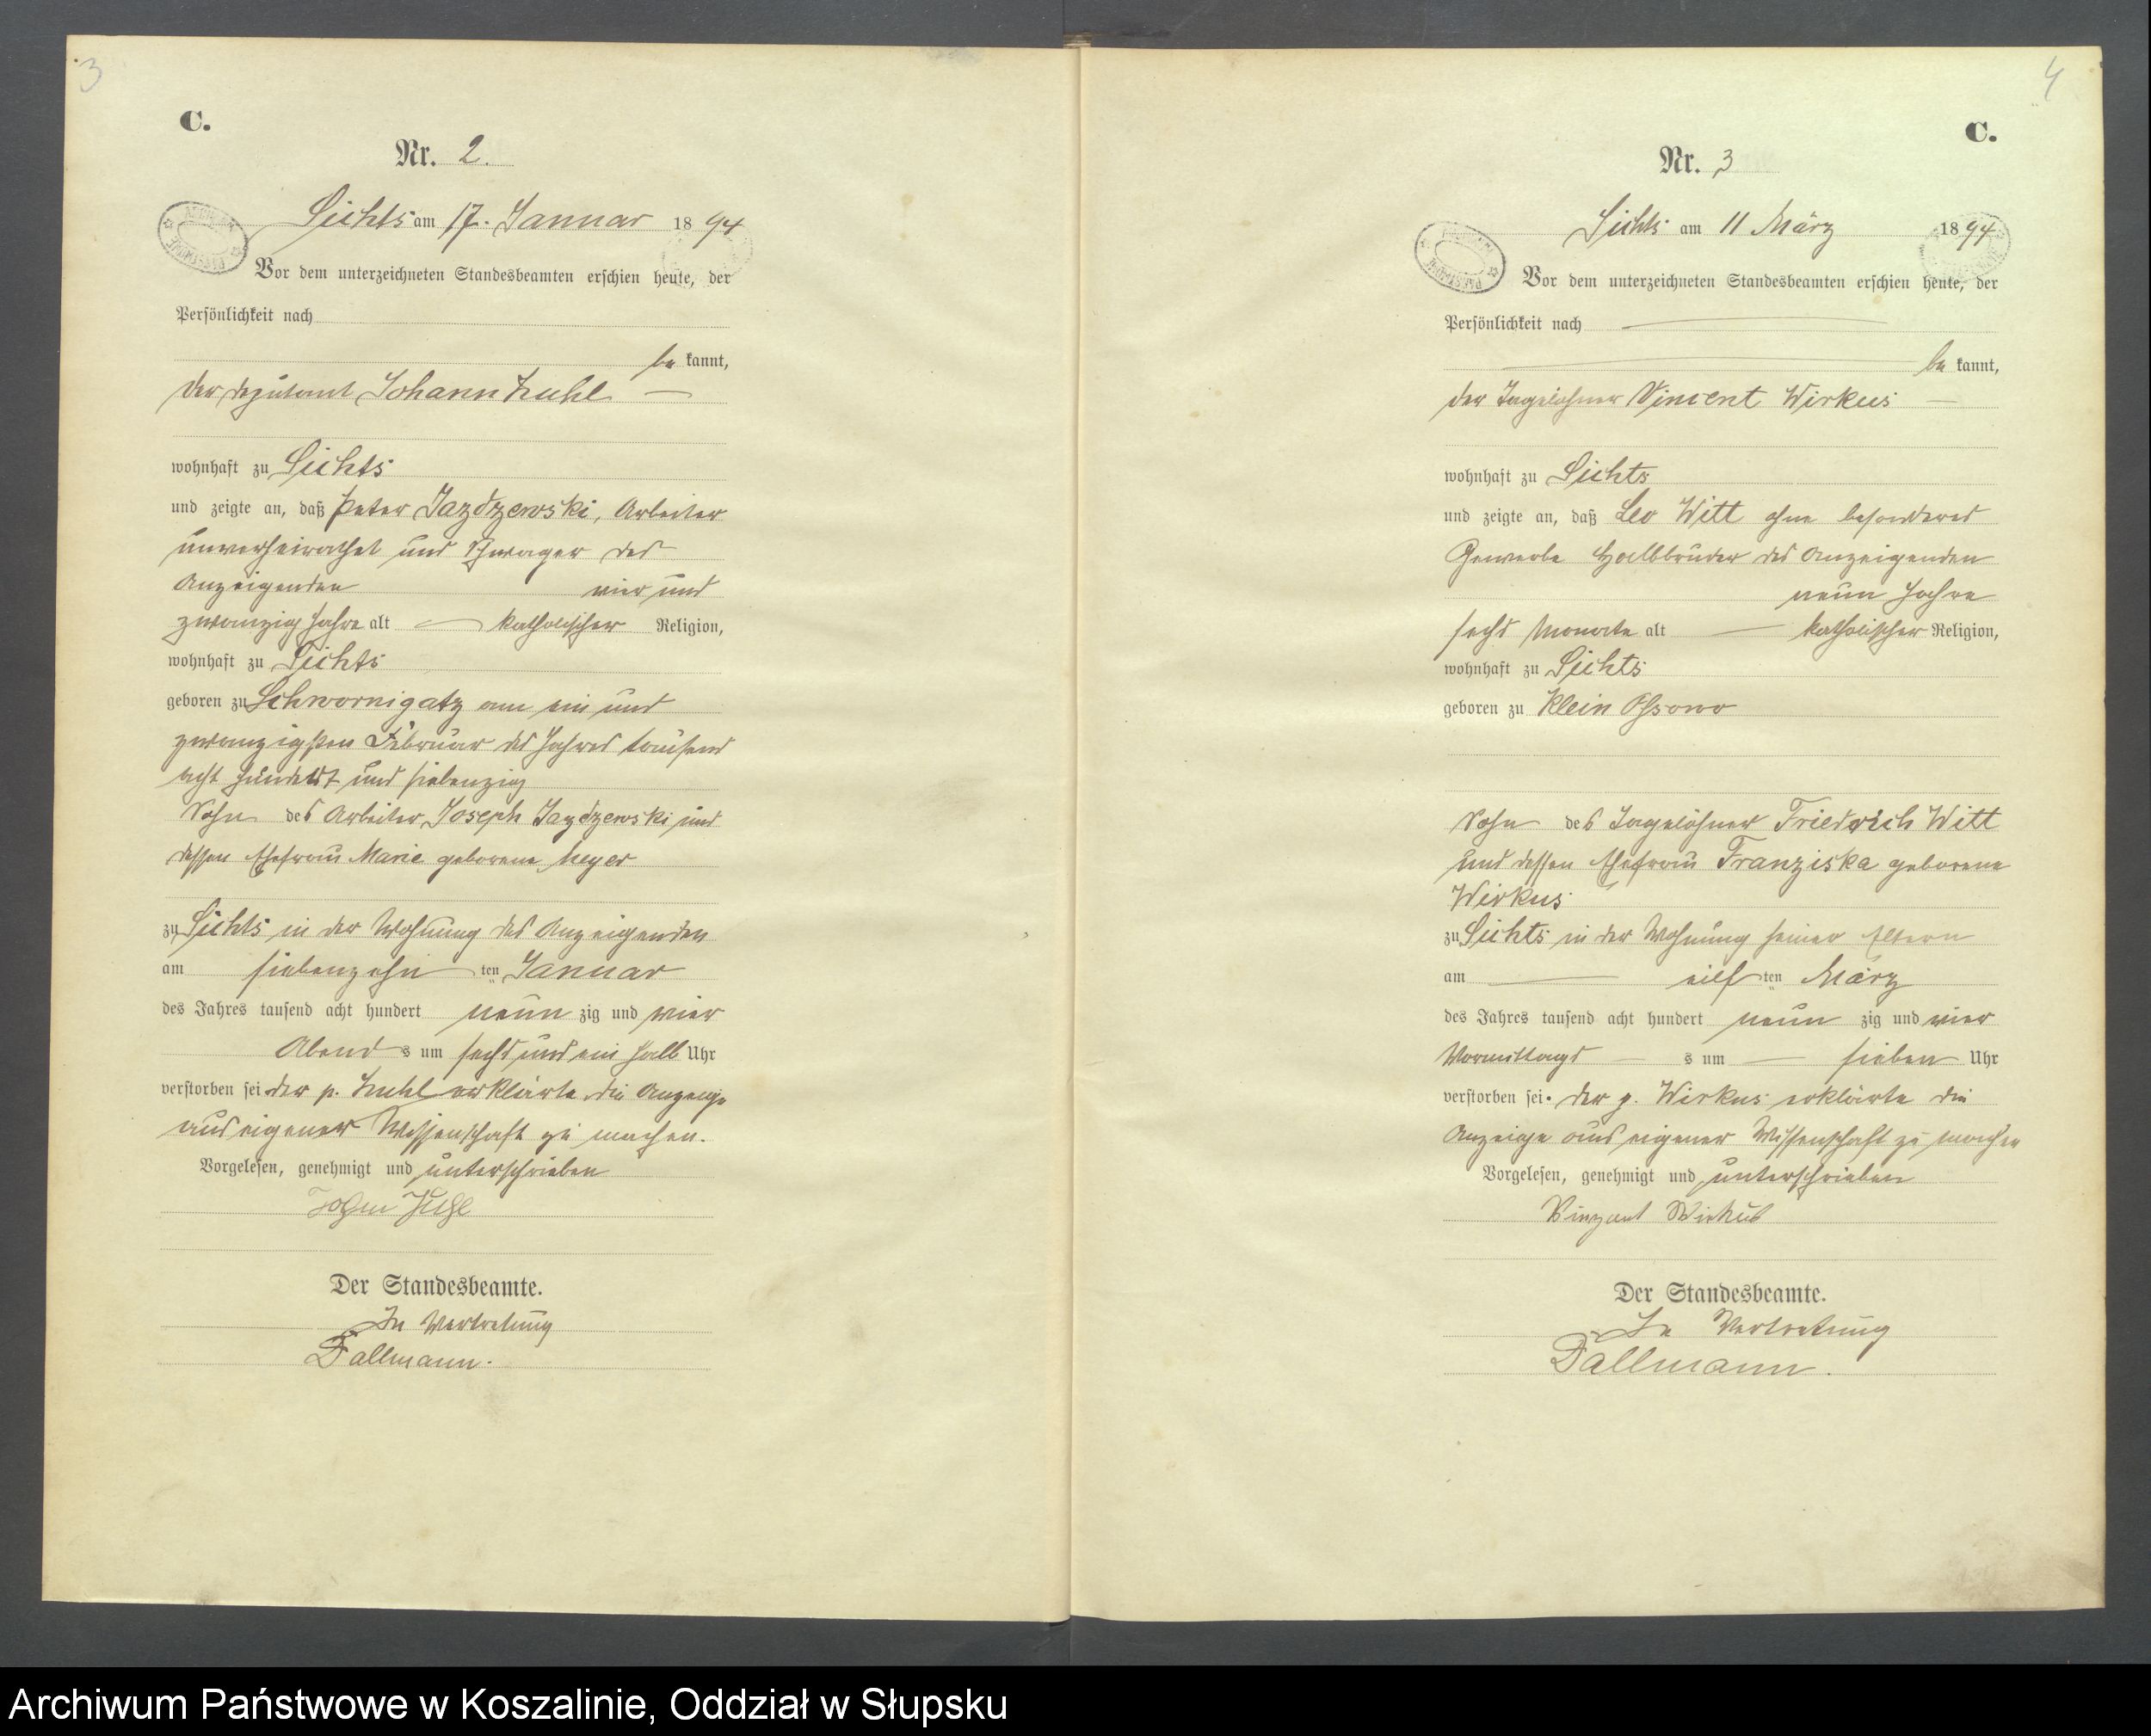 3
C.
Nr. 2.
Sichts am 17. Januar 1894
Vor dem unterzeichneten Standesbeamten erschien heute, der
Persönlichkeit nach
be kannt,
der Deputant Johann
wohnhaft zu Sichts
und zeigte an, daß Peter Jazdzewski, Arbeiter
unverheirathet und Schwager des
Anzeigenden vier und
zwanzig Jahre alt katholischer Religion,
wohnhaft zu Sichts
geboren zu Schwornigatz am ein und
zwanzigsten Februar des Jahres tausend
acht hundert und siebenzig
Sohn des Arbeiter Joseph Jazdzewski und
dessen Ehefrau Marie geborene Meyer
zu Sichts in der Wohnung des Anzeigenden
am siebenzehn ten Januar
des Jahres tausend acht hundert neun zig und vier
Abend s um sechs und ein halb Uhr
verstorben sei der p. erklärte die Anzeige
aus eigener Wissenschaft zu machen.
Vorgelesen, genehmigt und unterschrieben
Der Standesbeamte.
In Vertretung
Fallmann.
4
C.
Nr. 3
Sichts am 11 März 1894
Vor dem unterzeichneten Standesbeamten erschien heute, der
Persönlichkeit nach
be kannt,
der Tagelöhner Vincent Wirkus
wohnhaft zu Sichts
und zeigte an, daß Leo Witt ohne besonderes
Gewerbe Halbbruder des Anzeigenden
neun Jahre
sechs Monate alt katholischer Religion,
wohnhaft zu Sichts
geboren zu Klein Ossowo
Sohn des Tagelöhner Friedrich Witt
und dessen Ehefrau Franziska geborene
Wirkus
zu Sichts in der Wohnung seiner Eltern
am eilf ten März
des Jahres tausend acht hundert neun zig und vier
Vormittags s um sieben Uhr
verstorben sei. der p. Wirkus erklärte die
Anzeige aus eigener Wissenschaft zu machen
Vorgelesen, genehmigt und unterschrieben
Vinzent Wirkus
Der Standesbeamte.
In Vertretung
Fallmann.
Archiwum Państwowe w Koszalinie, Oddział w Słupsku